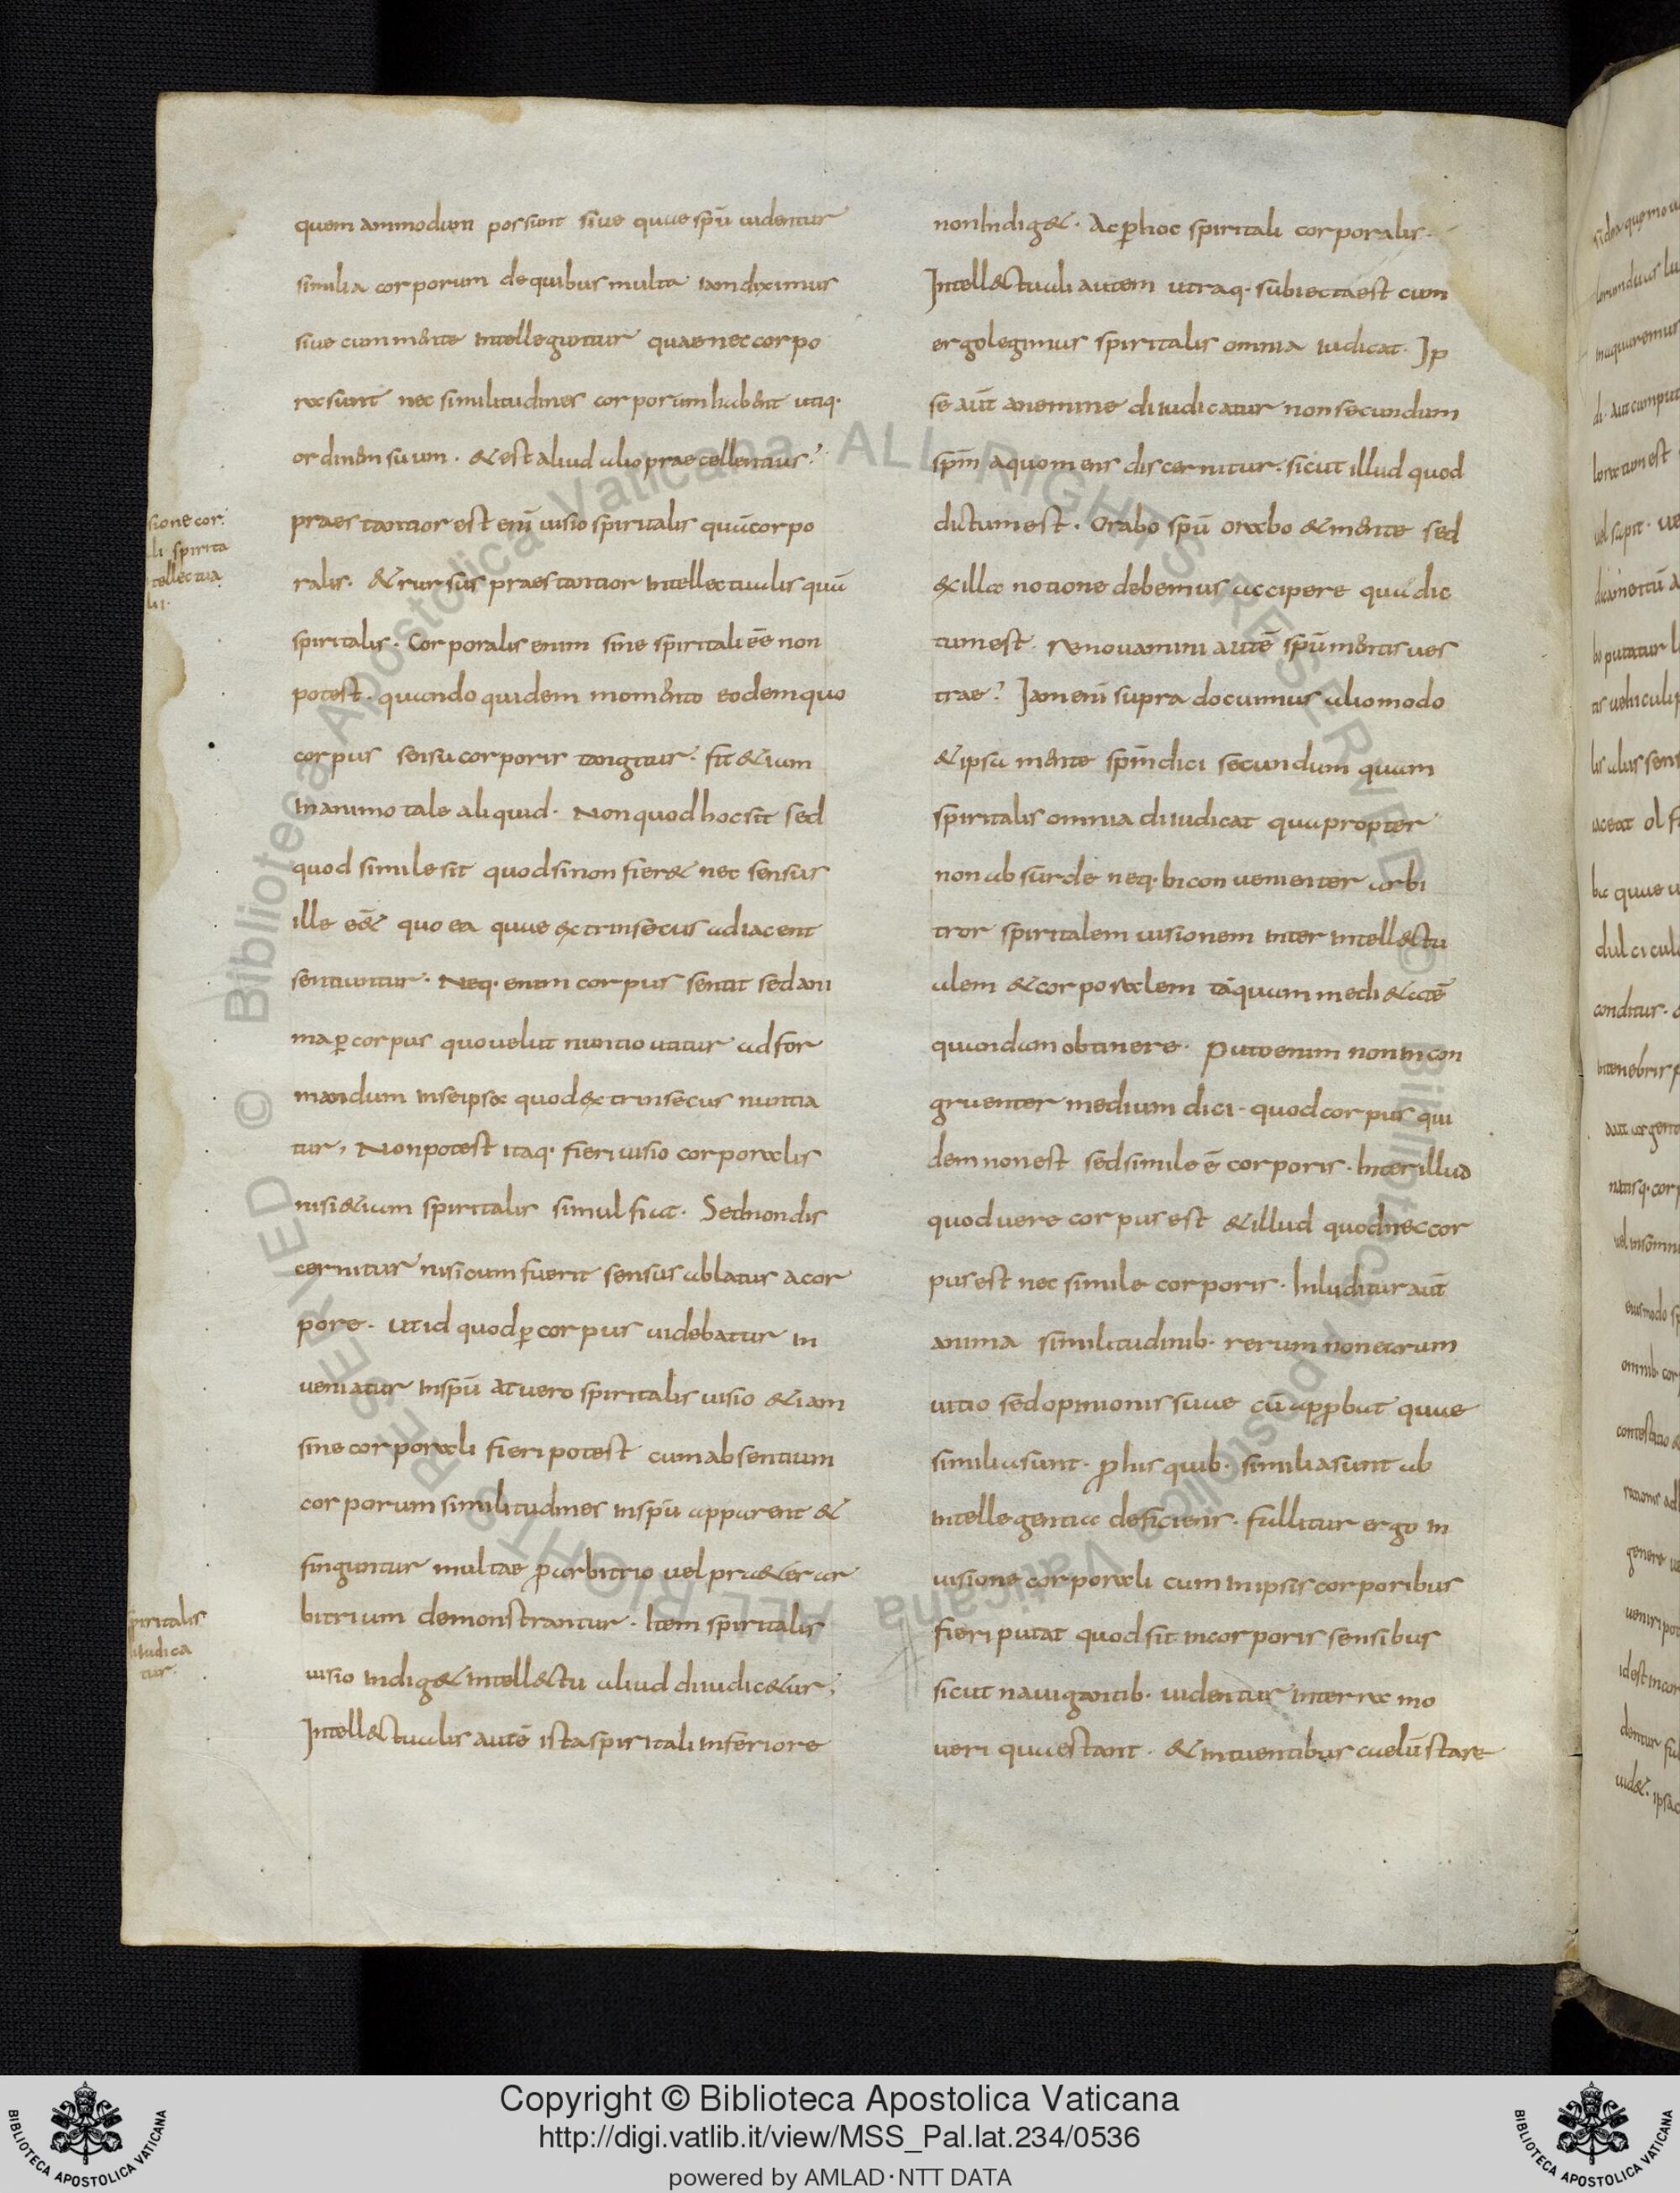 quemammodum possunt siue quae spū uidentur
similia corporum de quibus multa iam diximus
siue cum mente intelleguntur quae nec corpo
ra sunt nec similitudines corporum habent utiq·
ordinem suum · & est aliud alio praecellentius?
praestantior est enī uisio spiritalis quā corpo
ralis · & rursus praestantior intellectualis quā
spiritalis · Corporalis enim sine spiritali eē non
potest · quando quidem momento eodem quo
corpus sensu corporis tangitur · fit &iam
in animo tale aliquid · Non quod hoc sit sed
quod simile sit quod si non fier& nec sensus
ille eē& quo ea quae extrinsecus adiacent
sentiuntur · Neq· enim corpus sentit sed ani
ma ꝑ corpus quo uelut nuntio utitur ad for
mandum in se ipsa quod extrinsecus nuntia
tur, Non potest itaq· fieri uisio corporalis
nisi &iam spiritalis simul fiat · Sed non dis
cernitur nisi cum fuerit sensus ablatus a cor
pore · ut id quod ꝑ corpus uidebatur in
ueniatur in spū at uero spiritalis uisio &iam
sine corporali fieri potest cum absentium
corporum similitudines in spū apparent &
finguntur multae ꝓ arbitrio uel pra&er ar
bitrium demonstrantur · Item spiritalis
uisio indig& intell&tu aliud diiudic&ur;
Intell&tualis autē ista spiritali inferiore
sione cor
li spirita
tellectua
li·
spiritalis
iudica
tur·
non indig& · Ac ꝑ hoc spiritali corporalis ·
Intell&tuali autem utraq· subiecta est cum
ergo legimus spiritalis omnia iudicat · Ip
se aūt a nemine diiudicatur non secundum
spm̄ a quo mens discernitur · sicut illud quod
dictum est · Orabo spū orabo & mente sed
ex illa notione debemus accipere qua dic
tum est · Renouamini autē spū mentis ues
trae? Iam enī supra docuimus alio modo
& ipsā mente spm̄ dici secundum quam
spiritalis omnia diiudicat quapropter
non absurde neq· inconuenienter arbi
tror spiritalem uisionem inter intell&tu
alem & corporalem tāquam medi&atē
quandam obtinere · puto enim non incon
gruenter medium dici · quod corpus qui
dem non est sed simile ē corporis · Inter illud
quod uere corpus est & illud quod nec cor
pus est nec simile corporis · Inluditur aūt
anima similitudinib· rerum non earum
uitio sed opinionis suae cū apꝓbat quae
similia sunt · ꝓ his quib· similia sunt ab
intellegentia deficiens · fallitur ergo in
uisione corporali cum in ipsis corporibus
fieri putat quod fit in corporis sensibus
sicut nauigantib· uidentur in terra mo
ueri quae stant · & intuentibus caelū stare
Copyright © Biblioteca Apostolica Vaticana
http://digi.vatlib.it/view/MSS_Pal.lat.234/0536
powered by AMLAD·NTT DATA
BIBLIOTECA APOSTOLICA VATICANA
BIBLIOTECA APOSTOLICA VATICANA
© Biblioteca Apostolica Vaticana ALL RIGHTS RESERVED
© Biblioteca Apostolica Vaticana ALL RIGHTS RESERVED